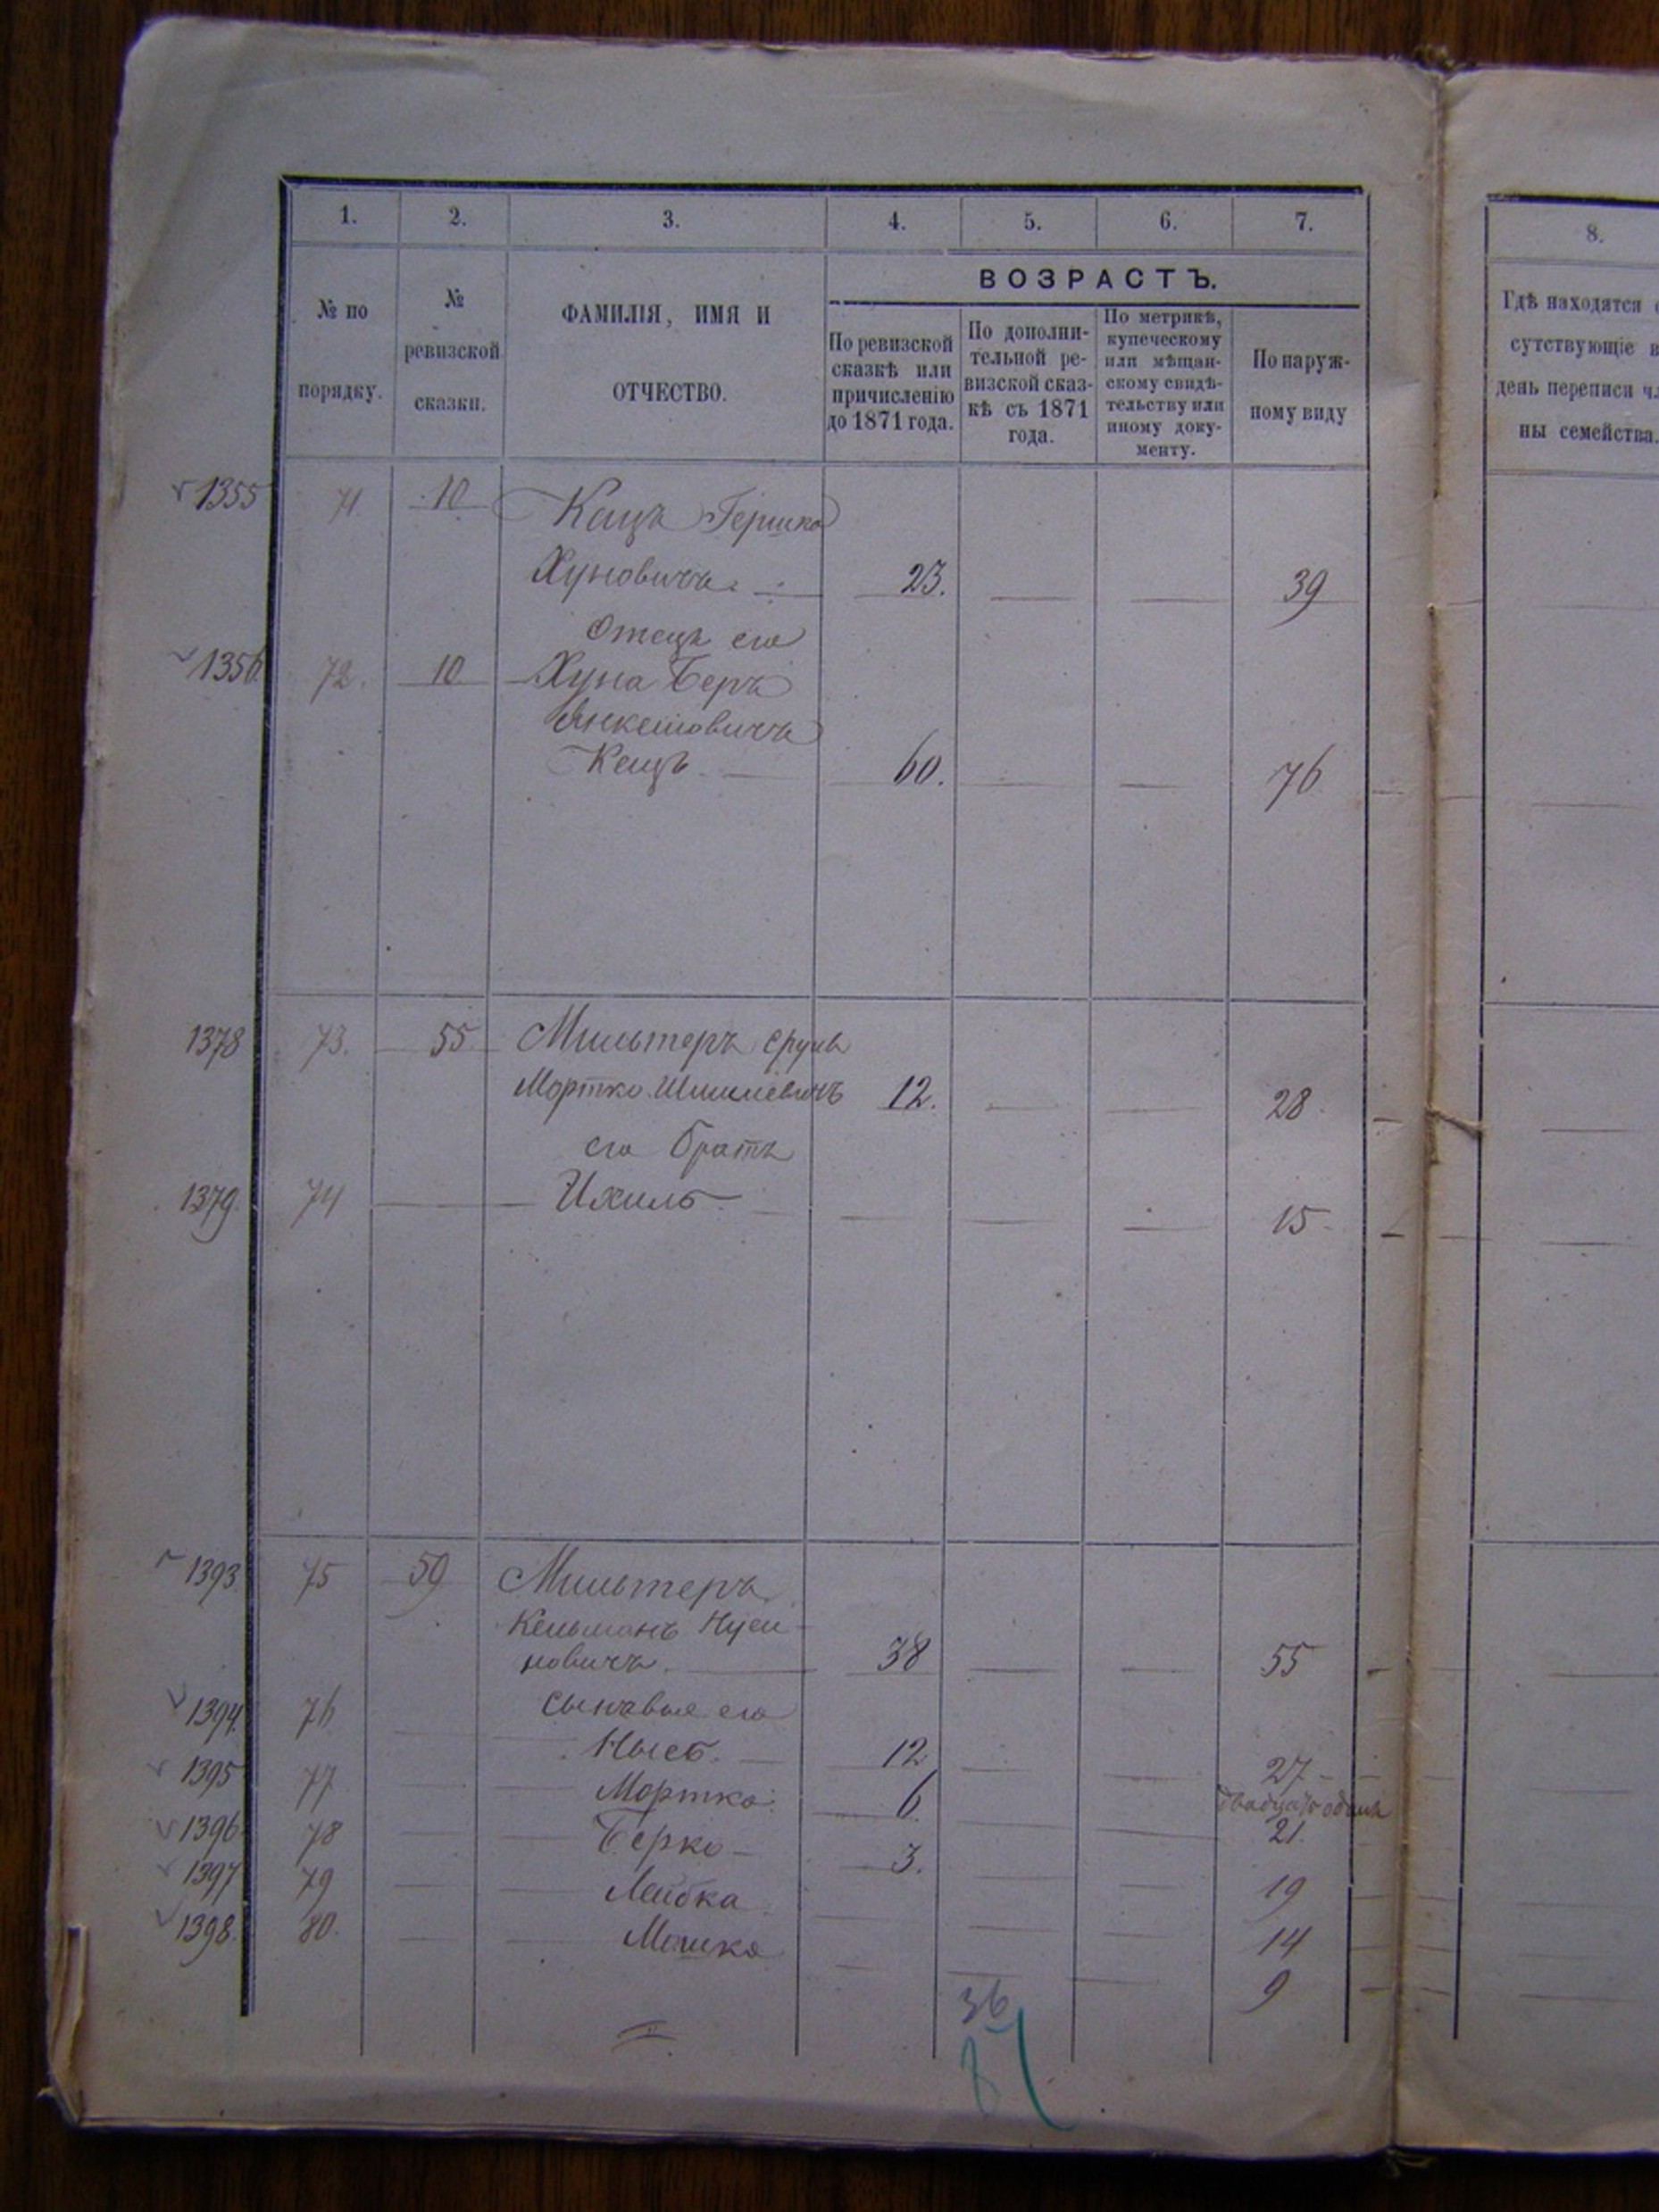 1. 2. 3. 4. 5. 6. 7. 8.
ВОЗРАСТЪ.
№ по
порядку.
№
ревизской
сказки.
ФАМИЛІЯ, ИМЯ И
ОТЧЕСТВО.
По ревизской
сказкѣ или
причисленію
до 1871 года.
По дополни-
тельной ре-
визской сказ-
кѣ съ 1871
года.
По метрикѣ,
купеческому
или мѣщан-
скому свидѣ-
тельству или
иному доку-
менту.
По наруж-
ному виду
Гдѣ находятся
сутствующіе
день переписи
ны семейства.
1355 71. 10 Кацъ Гершко
Хуновичъ. — 23. — — 39
Отецъ его
1356 72. 10 Хуна Беръ
Кацъ — 60. — — 76
1378 73. 55 Мильтеръ Сруль
Мортко Шмилевичъ 12. — — 28
его братъ
1379. 74 — Ихиль — — — — 15
1393 75 59 Мильтеръ
Кельманъ Нуси-
новичъ. — 38 — — 55
1394. 76 сыновья его
— Нысь. — 12 — — 27
1395 77 — Мортко 6 — —
двадцать одинъ
21.
1396 78 — Берко — 3. — — 19
1397 79 — Лейбка — — — 14
1398. 80. — Мошко — — — 9
36